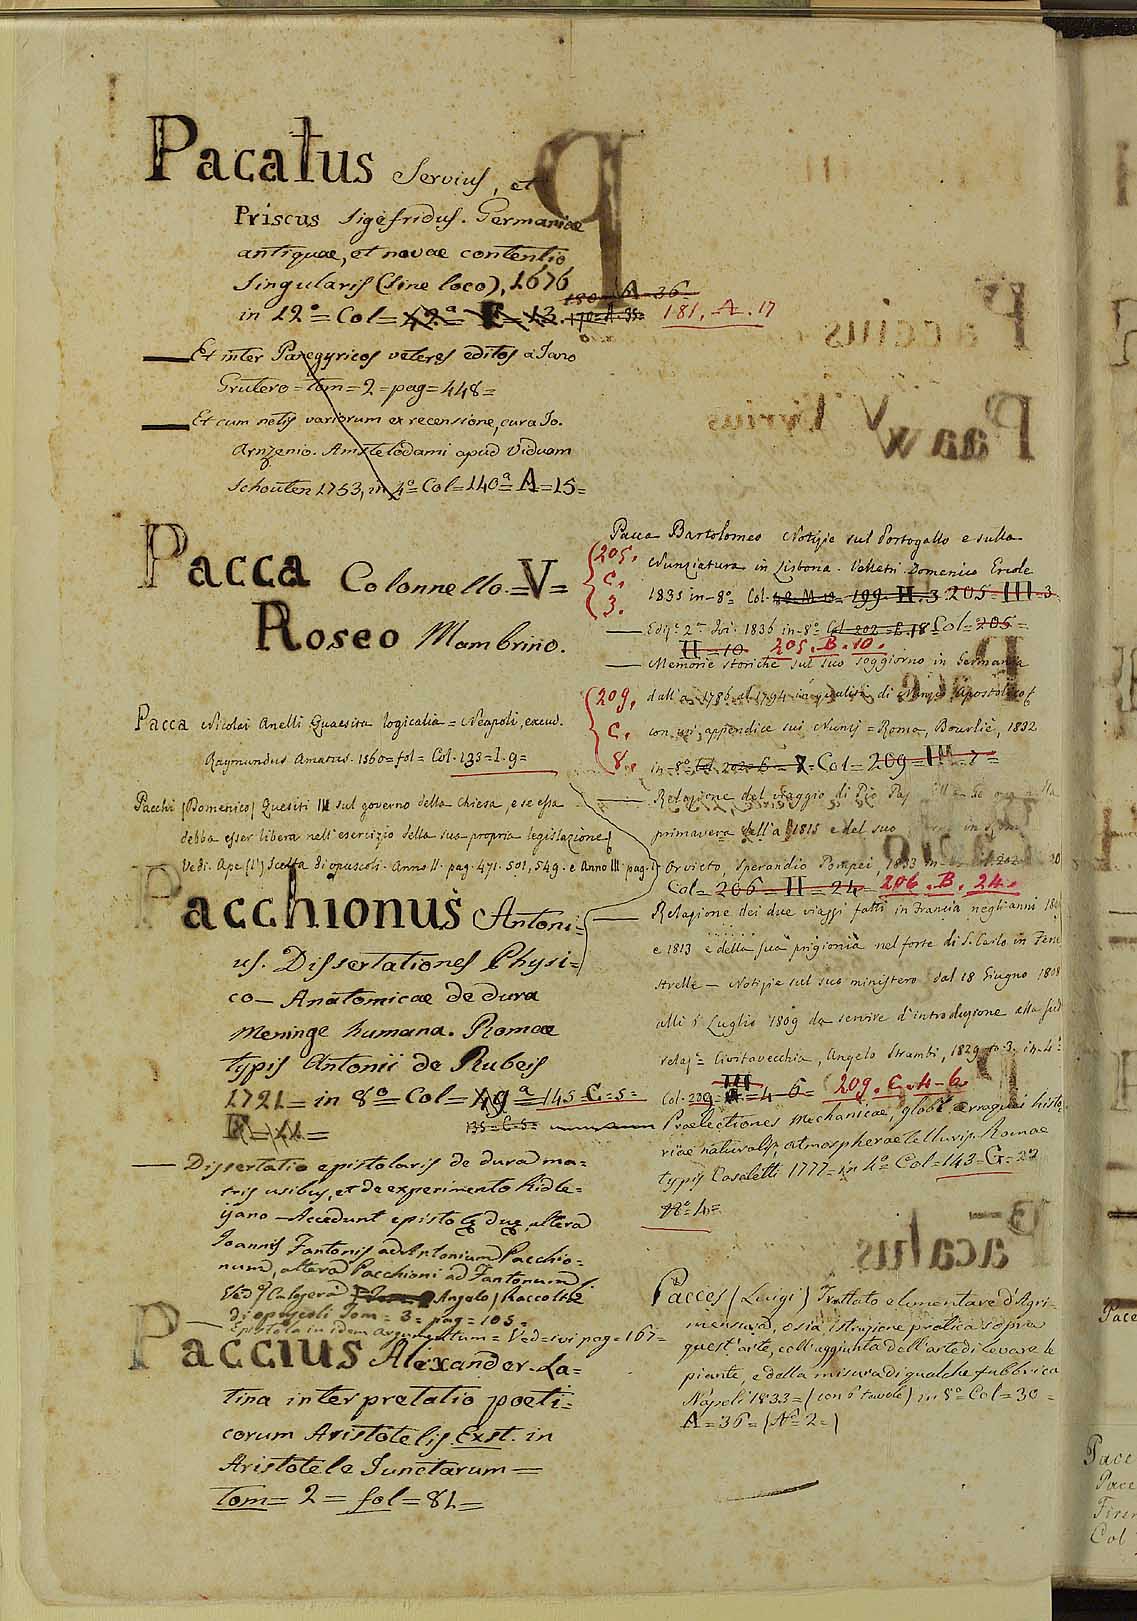 Pacatus Servius, et
Priscus Sigefridus. Germaniae
antiquae, et novae contentio
singularis (sine loco), 1676
in 12º = Col = 42ª E = 13. 170 = A. 35 =
180 = A = 36 =
181. A. 17
Et inter Panegyricos veteres editos a Jano
Grutero = tom = 2 = pag = 448 =
Et cum notis variorum ex recensione, cura Jo.
Arnzenio. Amstelodami apud Viduam
Schouten 1753, in 4º Col = 140ª A = 15 =
Pacca Colonnello = V =
Roseo Mambrino.
Pacca Nicolai Anelli Quaesita logicalia = Neapoli, excud.
Raymundus Amatus. 1560 = fol = Col. 133 = I. 9 =
Pacchi (Domenico) Quesiti III sul governo della Chiesa, e se essa
debba esser libera nell'esercizio della sua propria legislazione
Vedi. Ape (L') Scelta di opuscoli. Anno II. pag. 471. 501, 549. e Anno III pag. 1
Pacchionus Antoni-
us. Dissertationes Physi-
co - Anatomicae de dura
meninge humana. Romae
typis Antonii de Rubeis
1721 = in 8º = Col = 49ª = 145 = C = 5 =
135 = C = 5 =
Dissertatio epistolaris de dura ma-
tris usibus, et de experimento Ridle-
ijano - Accedunt epistolę duę, altera
Joannis Fantonis ad Antonium Pacchio-
num, altera Pacchioni ad Fantonum
Ved. Calgerà Angelo) Raccolta
di opuscoli Tom = 3 = pag = 105 =
Epistola in idem argumentum = Ved = ivi pag = 167 =
Paccius Alexander. La-
tina interpretatio poeti-
corum Aristotelis. Exst. in
Aristotele Junctarum =
tom = 2 = fol = 81 =
Pacca Bartolomeo Notizie sul Portogallo e sulla
Nunziatura in Lisbona. Velletri Domenico Ercole
1835 in-8º Col. 199. H. 3 205 = III = 3
205.
C.
3.
Ediz. 2ª Ivi. 1836 in-8º Col. 202 = E. 18 Col = 205 =
H = 10 205. B. 10.
Memorie storiche sul suo soggiorno in Germania
dall'a. 1786 al 1794 in qualità di Nunzio Apostolico
con un'appendice sui Nunzj = Roma, Bourliè, 1832
in-8º Col = 209 = III = 7 =
209.
C.
8.
Relazione del viaggio di Pio Pap
primavera dell'a 1815 e del suo
Orvieto, Sperandio Pompei, 1833
Col = 206 = H = 24 206. B. 24.
Relazione dei due viaggi fatti in Francia negli anni
e 1813 e della sua prigionia nel forte di S. Carlo in Fene
strelle - Notizie sul suo ministero dal 18 Giugno 1808
alli 6 Luglio 1809 da servire d'introduzione alla
relaz.e Civitavecchia, Angelo Strambi, 1829 to. 3. in-4º
Col. 209 = III = 4-6 209. C. 4-6
Praelectiones mechanicae, globi terraquei histo
riae naturalis, atmospherae telluris. Romae
typis Casaletti 1777 = in 4º Col = 143 = G = 22
Nº 4 =
Pacces (Luigi) Trattato elementare d'Agri-
mensura, ossia istruzione pratica sopra
quest'arte, coll'aggiunta dell'arte di levare le
piante, e della misura di qualche fabbrica
Napoli 1833 = (con 6 tavole) in 8º = Col = 30 =
A = 36 = (Nº 2 =)
Pace
Pace
Pace
Col